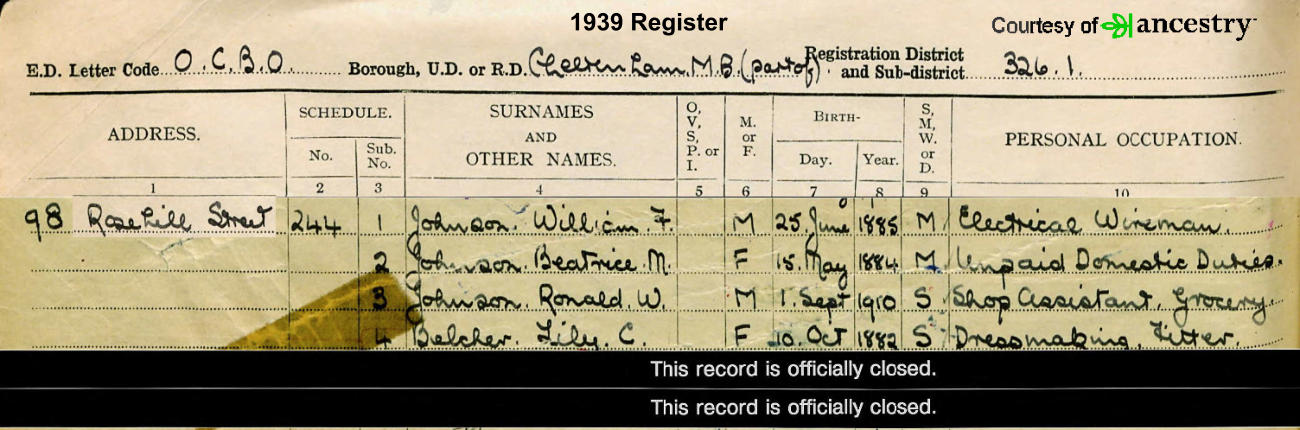 1939 Register
Courtesy of ancestry
E.D. Letter Code O.C.B.O. Borough, U.D. or R.D. Cheltenham M.B. (part of) Registration District and Sub-district 326.1.
ADDRESS. SCHEDULE. SURNAMES AND OTHER NAMES. O, V, S, P. or I. M. or F. BIRTH- S, M, W. or D. PERSONAL OCCUPATION.
No. Sub. No. Day. Year.
1 2 3 4 5 6 7 8 9 10
98 Rosehill Street 244 1 Johnson. William F. M 25 June 1885 M Electrical Wireman.
2 Johnson. Beatrice M. F 15. May 1884 M Unpaid Domestic Duties.
3 Johnson. Ronald W. M 1. Sept 1910 S Shop Assistant, Grocery.
4 Belcher. Lily. C. F 10. Oct 1882 S Dressmaking, Fitter.
This record is officially closed.
This record is officially closed.